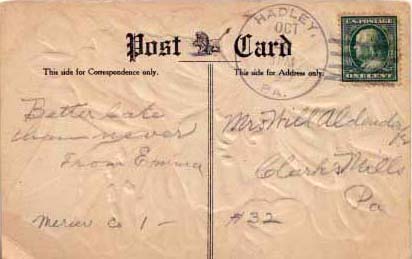 Post Card
This side for Correspondence only.
This side for Address only.
HADLEY,
OCT
PA.
U.S. POSTAGE
ONE CENT
Better Late
than never
From Emma
Mercer Co 1 -
Mrs Will
Clarks Mills
Pa
#32